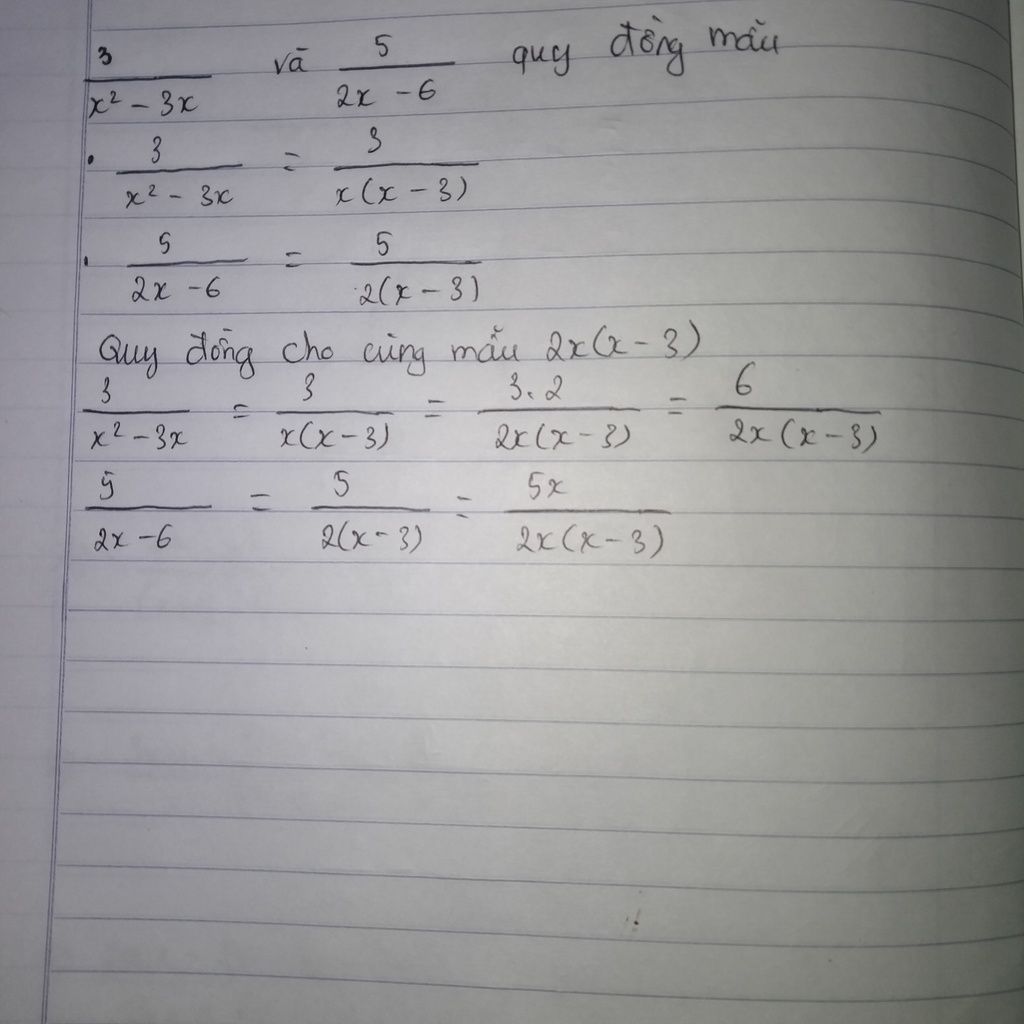 3/(x² - 3x) và 5/(2x - 6) quy đồng mẫu
. 3/(x² - 3x) = 3/(x(x - 3))
. 5/(2x - 6) = 5/(2(x - 3))
Quy đồng cho cùng mẫu 2x(x - 3)
3/(x² - 3x) = 3/(x(x - 3)) = 3.2/(2x(x - 3)) = 6/(2x(x - 3))
5/(2x - 6) = 5/(2(x - 3)) = 5x/(2x(x - 3))